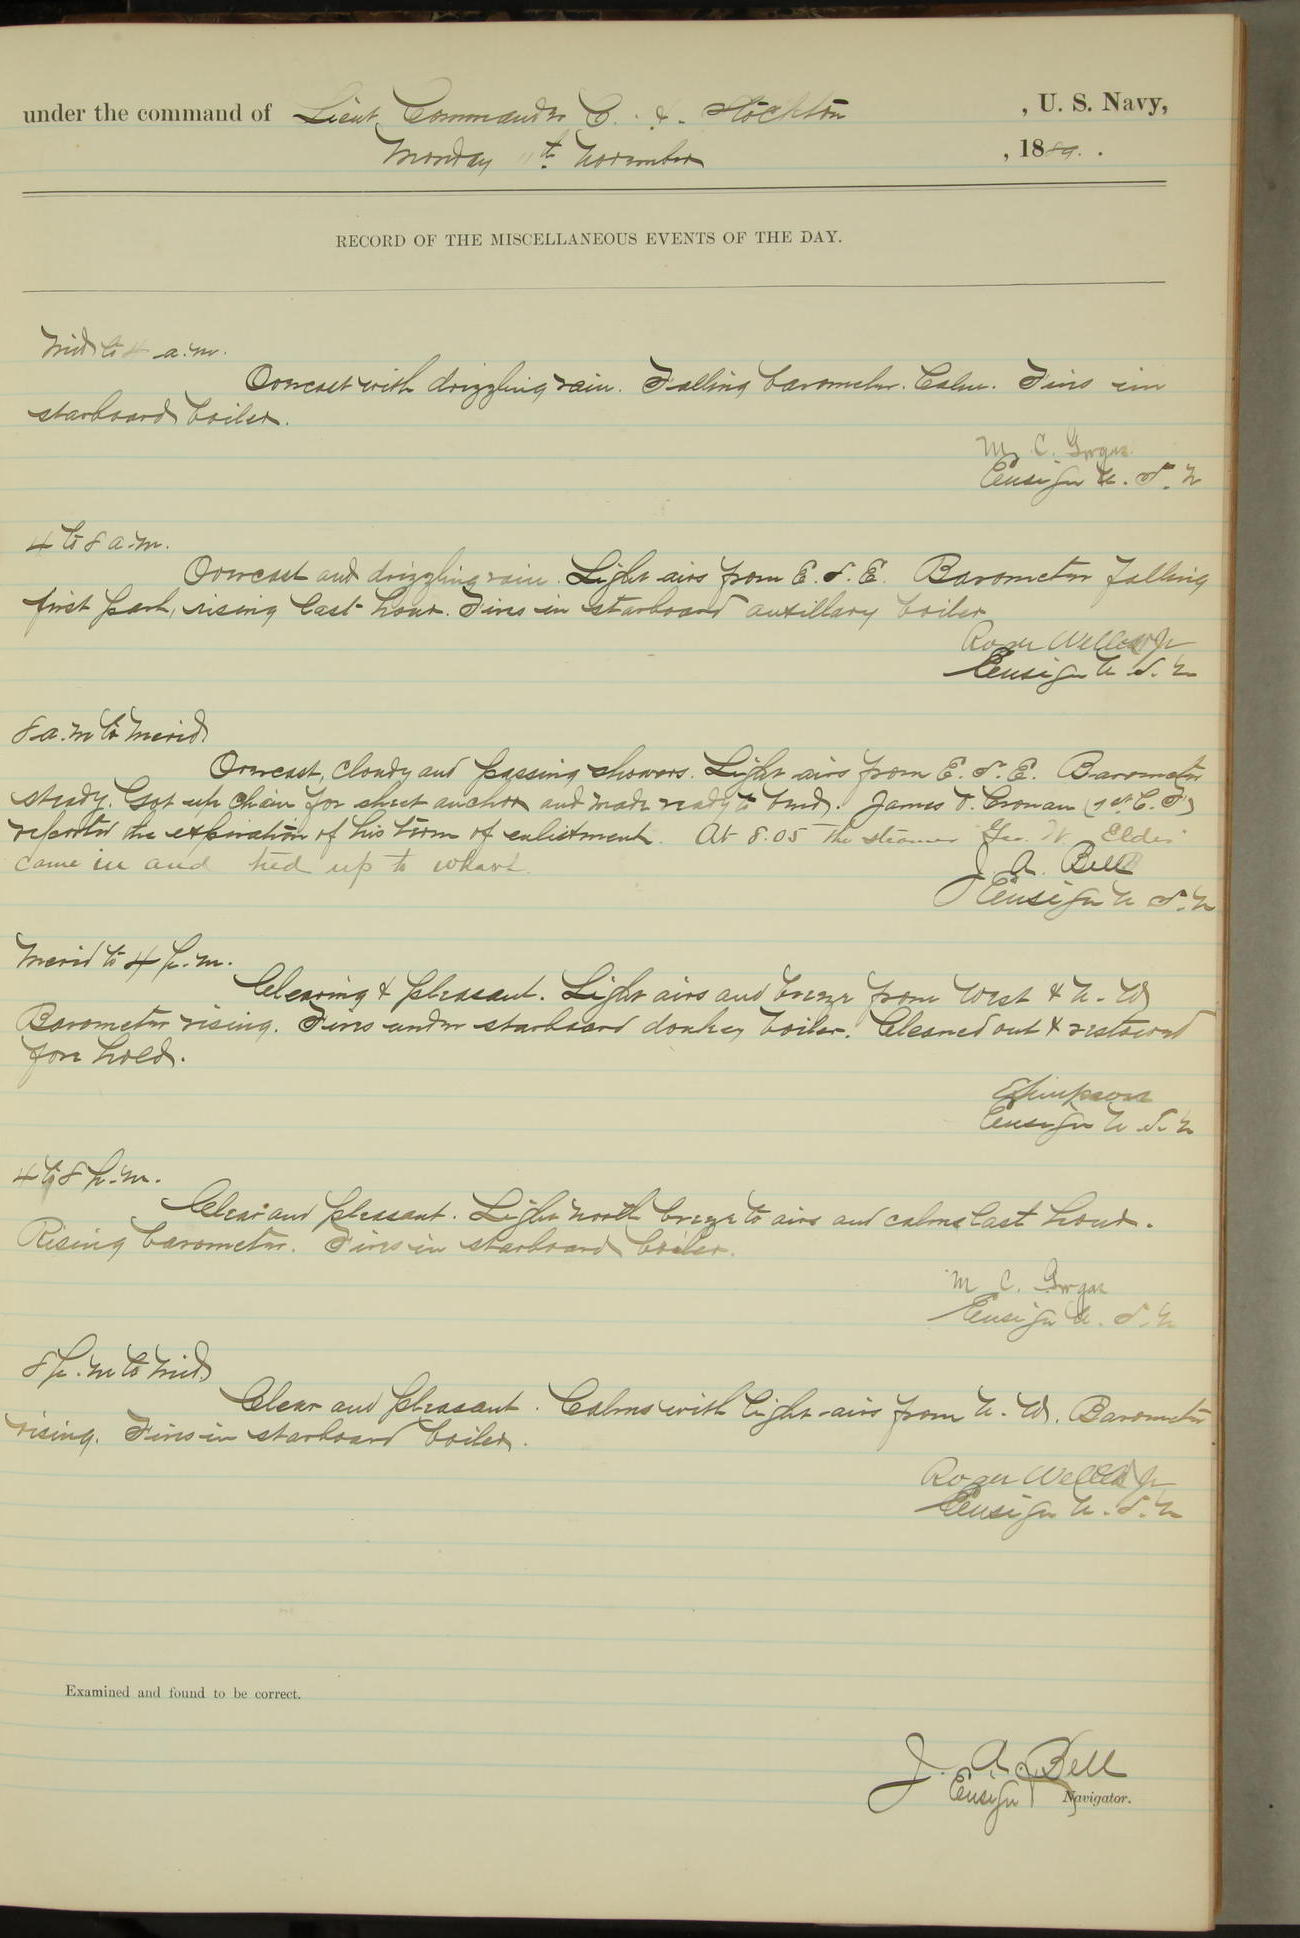 under the command of Lieut. Commander C. H. Stockton , U. S. Navy,
Monday 11th November , 1889.
RECORD OF THE MISCELLANEOUS EVENTS OF THE DAY.
Mid to 4 a.m.
Overcast with drizzling rain. Falling barometer. Calm. Fires in
starboard boiler.
M. C. Gorgas
Ensign U. S. N
4 to 8 a.m.
Overcast and drizzling rain. Light airs from E. S. E. Barometer falling
first part, rising last hour. Fires in starboard auxillary boiler
Roger Welles Jr
Ensign U. S. N
8 a.m to Merid
Overcast, cloudy and passing showers. Light airs from E. S. E. Barometer
steady. Got up chain for sheet anchor and made ready to bend. James D. Cronan (1st C. F)
reported the expiration of his term of enlistment. At 8.05 the steamer Geo. W. Elder
came in and tied up to wharf.
J. A. Bell
Ensign U. S. N
Merid to 4 p.m.
Clearing & pleasant. Light airs and breeze from West & N. W
Barometer rising. Fires under starboard donkey boiler. Cleaned out & restowed
fore hold.
E Simpson
Ensign U. S. N
4 to 8 p.m.
Clear and pleasant. Light north breeze to airs and calms last hour.
Rising barometer. Fires in starboard boiler.
M C. Gorgas
Ensign U. S. N
8 p.m to Mid
Clear and pleasant. Calms with light airs from N. W. Barometer
rising. Fires in starboard boiler.
Roger Welles Jr
Ensign U. S. N
Examined and found to be correct.
J. A. Bell
Ensign Navigator.